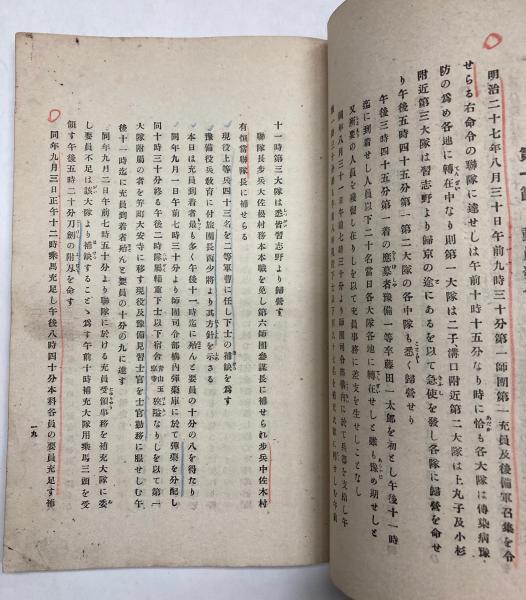 明治二十七年八月三十日午前九時三十分第一師團第一充員及後備軍召集の令
せらる右命令の聯隊に達せしは午前十時十五分なり時に恰も各大隊は傳染病豫
防の爲め各地に轉在中なり則第一大隊は二子溝口附近第二大隊は上丸子及小杉
附近第三大隊は習志野より歸京の途にあるを以て急使を發し各隊に歸營を命せ
り午後五時四十五分第一第二大隊の各中隊も悉く歸營せり
午後三時四十五分第一着の應募者豫備一等卒藤田一太郎を初とし午後十一時
迄に到着せし人員以下二十名當日各大隊各地に轉在せしと雖も豫め期せしと
十一時第三大隊は悉皆習志野より歸營す
聯隊長步兵大佐松村務本本職を免し第六師團參謀長に補せられ步兵中佐木村
有恒當聯隊長に補せらる
現役上等兵四十三名を二等軍曹に任し下士の補缺を爲す
豫備役兵敎育に付旅團長西少將より其方針を示さる
本日は充員到着者最も多く午後十一時迄に殆んと要員の十分の八を得たり
同年九月一日午前七時三十分より師團司令部構內彈藥庫に於て彈藥を分配し
同十時三十分終る午後二時隊屬輜重下士以下宿舍
狹隘なりしを以て第一
大隊附屬の者を笄町大安寺に移す現役及豫備見習士官を士官勤務に服せしむ午
後十一時迄に充員到着者殆んと要員の十分の九に達す
同年九月二日午前七時五十分より聯隊に於ける充員受領事務を補充大隊に委
し要員不足は該大隊より補缺することゝ爲す午前十時補充大隊用乘馬三頭を受
領す午後五時二十分刀劍の附刃を命す
同年九月三日正午十二時乘馬充足し午後八時四十分本科各員の要員充足す補
一九